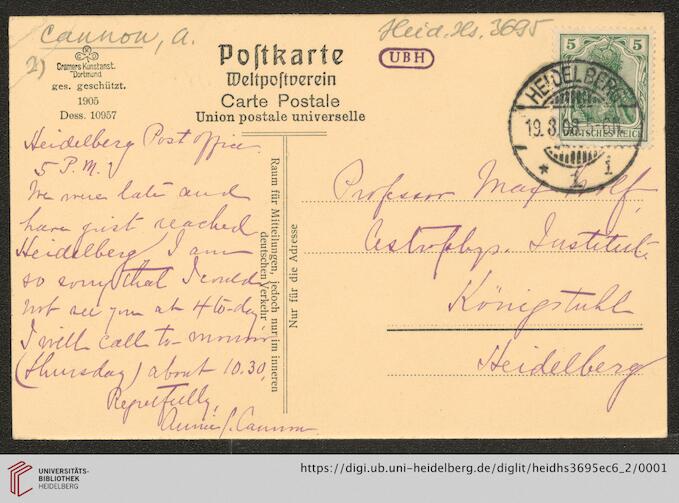 Cannon, A.
2)
Heid. Hs. 3695
Cramers Kunstanst.
Dortmund
ges. geschützt.
1905
Dess. 10957
Postkarte
Weltpostverein
Carte Postale
Union postale universelle
UBH
5 5
DEUTSCHES REICH
HEIDELBERG
19.8.08. 5-6N.
* 1 i
Heidelberg Post office
5 P.M.
We were late and
have just reached
Heidelberg. I am
so sorry that I could
not see you at 4 to-day
I will call to-morrow
(Thursday) about 10.30,
Regretfully,
Annie J. Cannon.
Raum für Mitteilungen, jedoch nur im inneren
deutschen Verkehr
Nur für die Adresse
Professor Max Wolf,
Astrophys. Institut.
Königstuhl
Heidelberg
UNIVERSITÄTS-
BIBLIOTHEK
HEIDELBERG
https://digi.ub.uni-heidelberg.de/diglit/heidhs3695ec6_2/0001